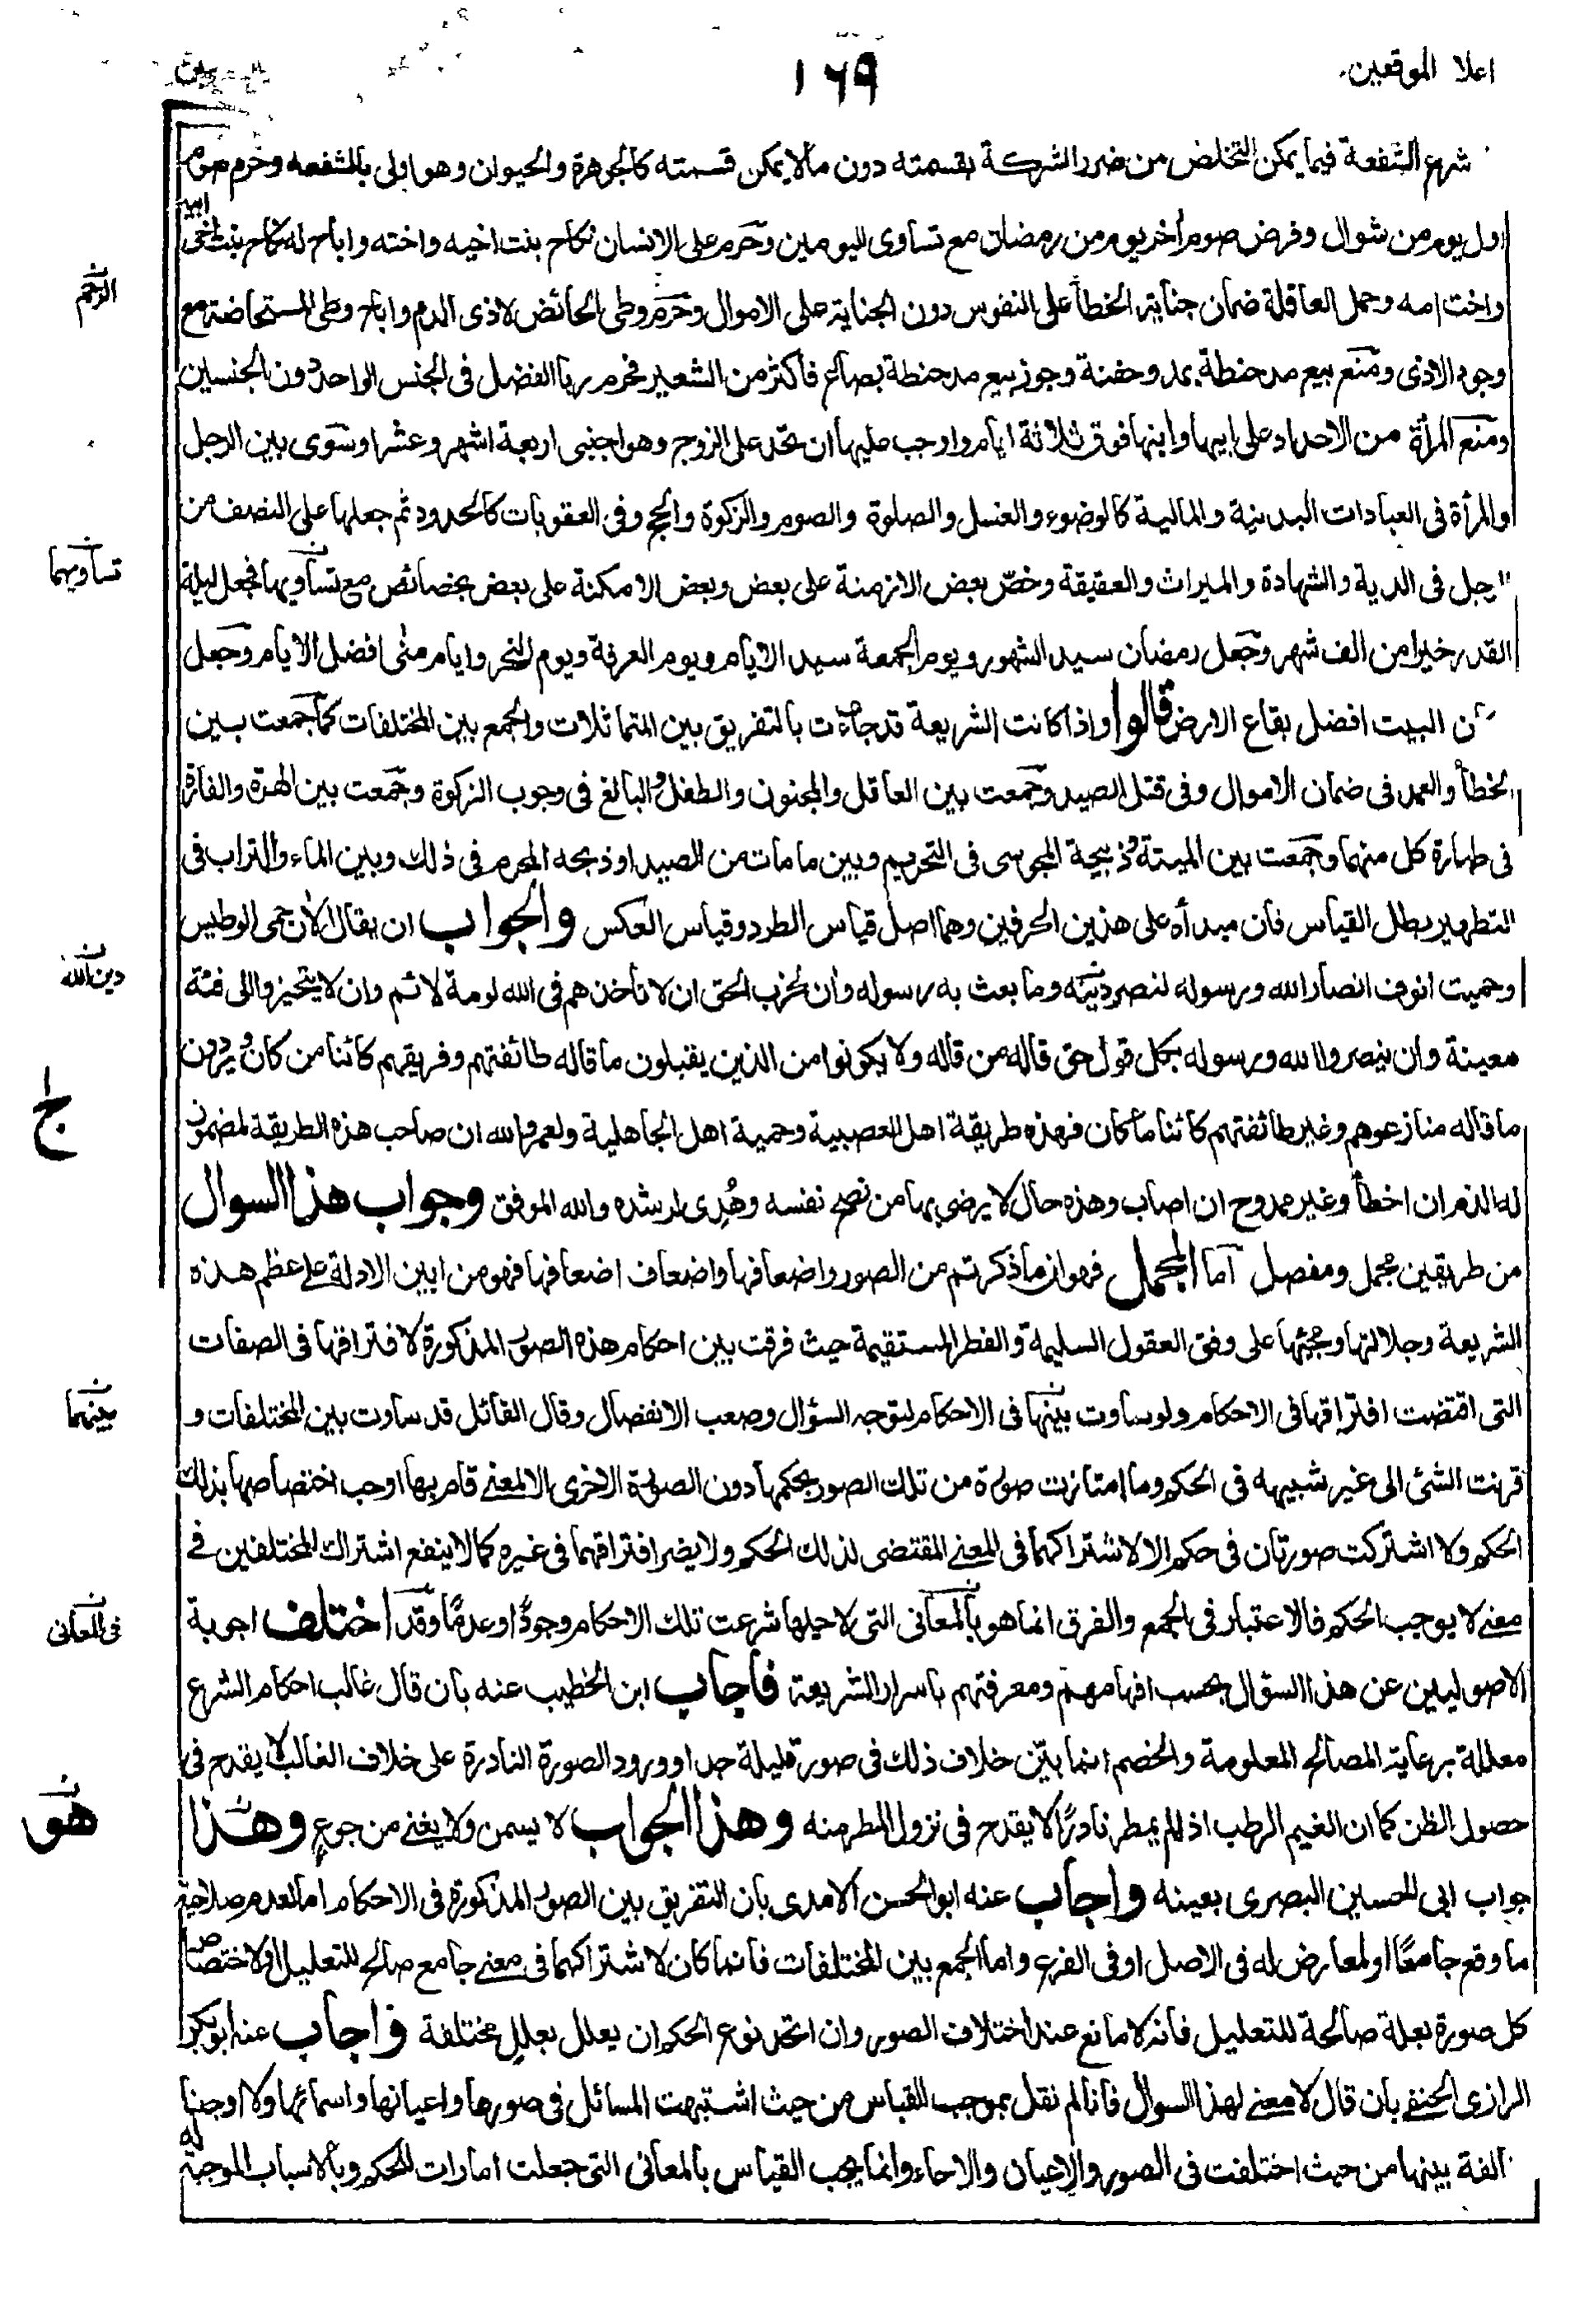 اعلا الموقعين
١٦٩
شرع الشفعة فيما يمكن التخلص من ضرر الشركة بقسمته دون مالا يمكن قسمته كالجوهرة والحيوان وهو اولى بالشفعه وحرم صوم
اول يوم من شوال وفرض صوم آخر يوم من رمضان مع تساوى اليومين وحرم على الانسان نكاح بنت اخيه واخته واباح له نكاح بنت اخى ابيه
واخت امه وحمل العاقلة ضمان جناية الخطأ على النفوس دون الجناية على الاموال وحرم وطى الحائض لاذى الدم واباح وطى المستحاضة مع
الرحم
وجود الاذى ومنع بيع مد حنطة بمد وحفنة وجوز بيع مد حنطة بصاع فاكثر من الشعير فحرم ربا الفضل فى الجنس الواحد دون الجنسين
ومنع المرأة من الاحداد على ابيها وابنها فوق ثلاثة ايام واوجب عليها ان تحد على الزوج وهو اجنبى اربعة اشهر وعشرا وسوى بين الرجل
والمرأة فى العبادات البدنية والمالية كالوضوء والغسل والصلوة والصوم والزكوة والحج وفى العقوبات كالحدود ثم جعلها على النصف من
الرجل فى الدية والشهادة والميراث والعقيقة وخص بعض الازمنة على بعض وبعض الامكنة على بعض بخصائص مع تساويها فجعل ليلة
تساويهما
القدر خيرا من الف شهر وجعل رمضان سيد الشهور ويوم الجمعة سيد الايام ويوم العرفة ويوم النحر وايام منى افضل الايام وجعل
البيت افضل بقاع الارض قالوا واذا كانت الشريعة قد جاءت بالتفريق بين المتماثلات والجمع بين المختلفات كما جمعت بين
الخطأ والعمد فى ضمان الاموال وفى قتل الصيد وجمعت بين العاقل والمجنون والطفل والبالغ فى وجوب الزكوة وجمعت بين الهرة والفارة
فى طهارة كل منهما وجمعت بين الميتة وذبيحة المجوسى فى التحريم وبين ما مات من الصيد او ذبحه المحرم فى ذلك وبين الماء والتراب فى
التطهير بطل القياس فان مبدأه على هذين الحرفين وهما اصل قياس الطرد وقياس العكس والجواب ان يقال الآن حمى الوطيس
وحميت انوف انصار الله ورسوله لنصر دينه وما بعث به رسوله وان لحزب الحق ان لا تاخذهم فى الله لومة لائم وان لا يتحيزوا الى فئة
دين الله
معينة وان ينصروا الله ورسوله بكل قول حق قاله من قاله ولا يكونوا من الذين يقبلون ما قاله طائفتهم وفريقهم كائنا من كان ويردون
ج
ما قاله منازعوهم وغير طائفتهم كائنا ما كان فهذه طريقة اهل العصبية وحمية اهل الجاهلية ولعمر الله ان صاحب هذه الطريقة لمضمون
له الذم ان اخطأ وغير ممدوح ان اصاب وهذه حال لا يرضى بها من نصح نفسه وهُدِى لرشده والله الموفق وجواب هذا السوال
من طريقين مجمل ومفصل اما المجمل فهو ان ما ذكرتم من الصور واضعافها واضعاف اضعافها فهو من ابين الادلة على عظم هذه
الشريعة وجلالتها ومجيئها على وفق العقول السليمة والفطر المستقيمة حيث فرقت بين احكام هذه الصور المذكورة لافتراقها فى الصفات
التى اقتضت افتراقها فى الاحكام ولو ساوت بينها فى الاحكام لتوجه السؤال وصعب الانفصال وقال القائل قد ساوت بين المختلفات و
بينهما
قرنت الشئ الى غير شبيهه فى الحكم وما امتازت صورة من تلك الصور بحكمها دون الصورة الاخرى الا لمعنى قام بها اوجب اختصاصها بذلك
الحكم ولا اشتركت صورتان فى حكم الا لاشتراكهما فى المعنى المقتضى لذلك الحكم ولا يضر افتراقهما فى غيره كما لا ينفع اشتراك المختلفين فى
معنى لا يوجب الحكم فالاعتبار فى الجمع والفرق انما هو بالمعانى التى لاجلها شرعت تلك الاحكام وجودًا وعدمًا وقد اختلف اجوبة
فى المعانى
الاصوليين عن هذا السؤال بحسب افهامهم ومعرفتهم باسرار الشريعة فاجاب ابن الخطيب عنه بان قال غالب احكام الشرع
معللة برعاية المصالح المعلومة والخصم انما بيّن خلاف ذلك فى صور قليلة جدا وورود الصورة النادرة على خلاف الغالب لا يقدح فى
حصول الظن كما ان الغيم الرطب اذ لم يمطر نادرًا لا يقدح فى نزول المطر منه وهذا الجواب لا يسمن ولا يغنى من جوع وهذا
هو
جواب ابى الحسين البصرى بعينه واجاب عنه ابو الحسن الآمدى بان التفريق بين الصور المذكورة فى الاحكام اما لعدم صلاحية
ما وقع جامعًا او لمعارض له فى الاصل او فى الفرع واما الجمع بين المختلفات فانما كان لاشتراكهما فى معنى جامع صالح للتعليل او لاختصاص
كل صورة بعلة صالحة للتعليل فانه لا مانع عند اختلاف الصور وان اتحد نوع الحكم ان يعلل بعللٍ مختلفة واجاب عنه ابو بكر
الرازى الحنفى بان قال لا معنى لهذا السوال فانا لم نقل بموجب القياس من حيث اشتبهت المسائل فى صورها واعيانها واسمائها ولا اوجبنا
المخالفة بينها من حيث اختلفت فى الصور والاعيان والاسماء وانما يجب القياس بالمعانى التى جعلت امارات للحكم وبالاسباب الموجبة له